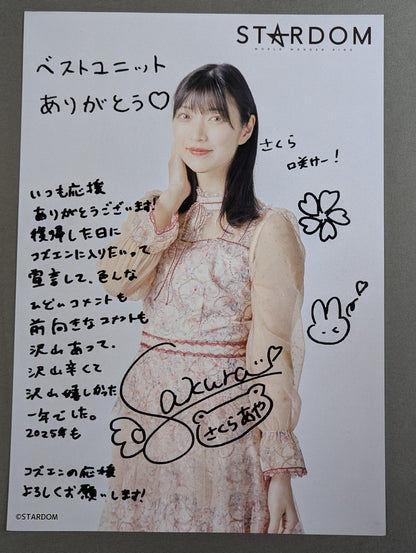 STARDOM
WORLD WONDER RING
ベストユニット
ありがとう♡
さくら
咲けー!
いつも応援
ありがとうございます!
獲得した日に
コズエンに入りたいって
宣言して、色んな
ひどいコメントも
前向きなコメントも
沢山あって、
沢山辛くて
沢山嬉しかった
一年でした。
2025年も
コズエンの応援
よろしくお願いします!
Sakura
さくらあや
©STARDOM